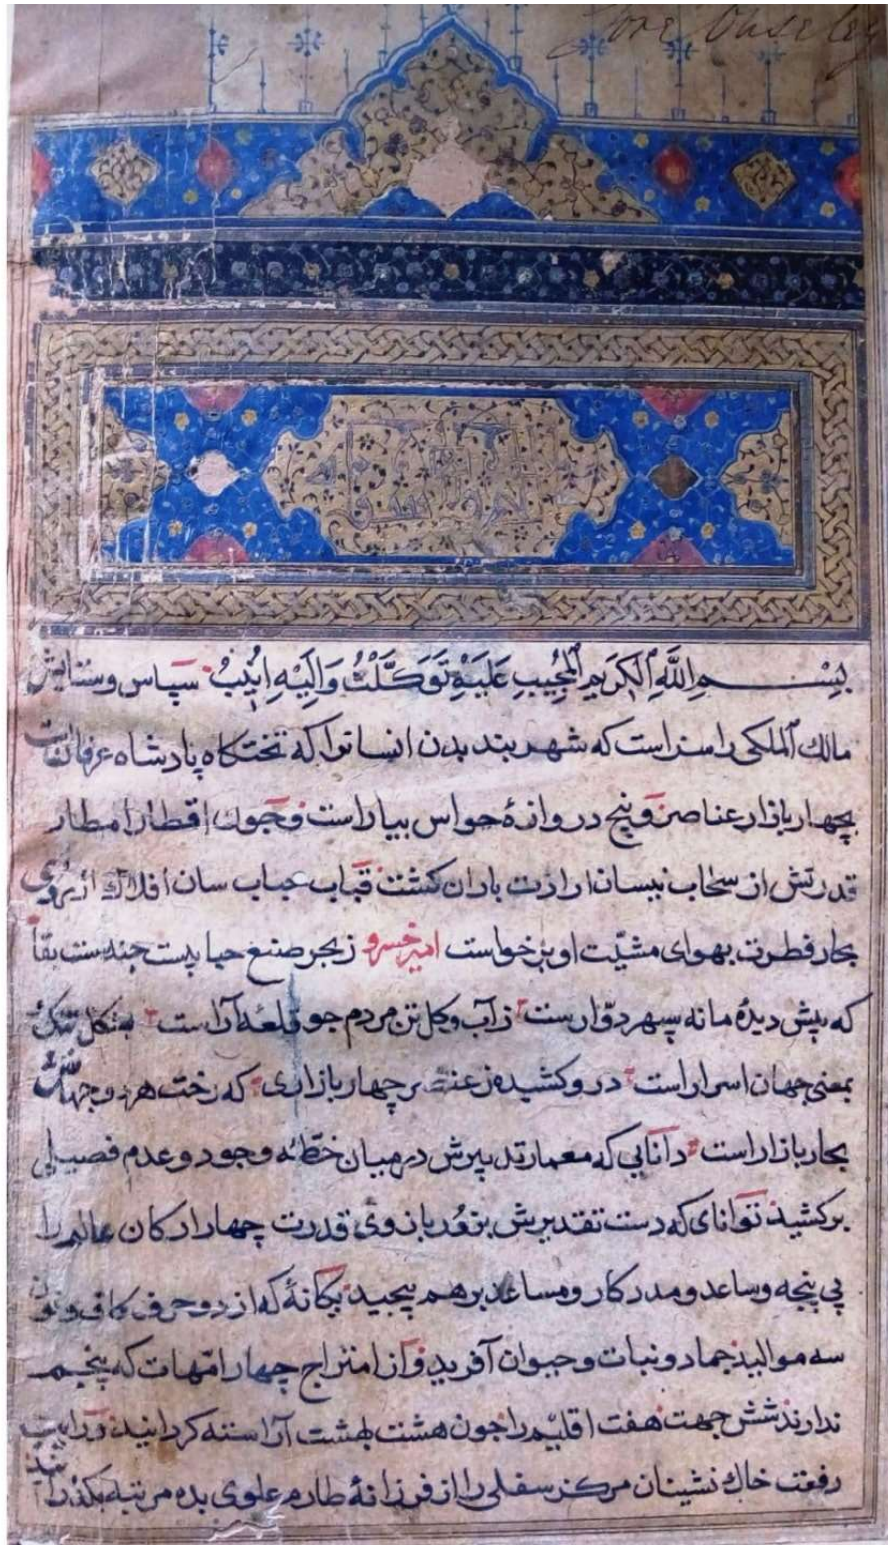 Gore Ouseley
بِسْمِ اللَّهِ الْكَرِيمِ الْمُجِيبِ عَلَيْهِ تَوَكَّلْتُ وَإِلَيْهِ اُنِيبُ سپاس و ستایش
مالك الملکی را سزاست که شهربند بدن انسانرا که تختکاه پادشاه عرفانست
بچهار بازار عناصر و پنج دروازهٔ حواس بیاراست و چون اقطار امطار
قدرتش از سحاب نیسان ارادت باران کشت قباب حباب سان افلاك از روی
بحار فطرت بهوای مشیّت او برخواست امیر خسرو ز بحر صنع حبابیست چند سست بقا
که پیش دیدهٔ ما نه سپهر دوّارست ز آب و کل تن مردم جو قلعهٔ آراست بشکل تنك
بمعنی جهان اسرار است درو کشیده ز عنصر چهار بازاری که رخت هر دو جهانش
بچار بازار است دانایی که معمار تدبیرش درمیان خطّهٔ وجود و عدم فصیلی
برکشید توانای که دست تقدیرش بزور بازوی قدرت چهار ارکان عالم را
بی پنجه و ساعد و مدد کار و مساعد برهم پیجید یکانهٔ که از دو حرف کاف و نون
سه موالید جماد و نبات و حیوان آفرید و از امتزاج چهار امّهات که پنجم
ندارند شش جهت هفت اقلیم را جون هشت بهشت آراسته کردانید و رایت
رفعت خاك نشینان مرکز سفلی را از فرزانهٔ طارم علوی بده مرتبه بکذرانید